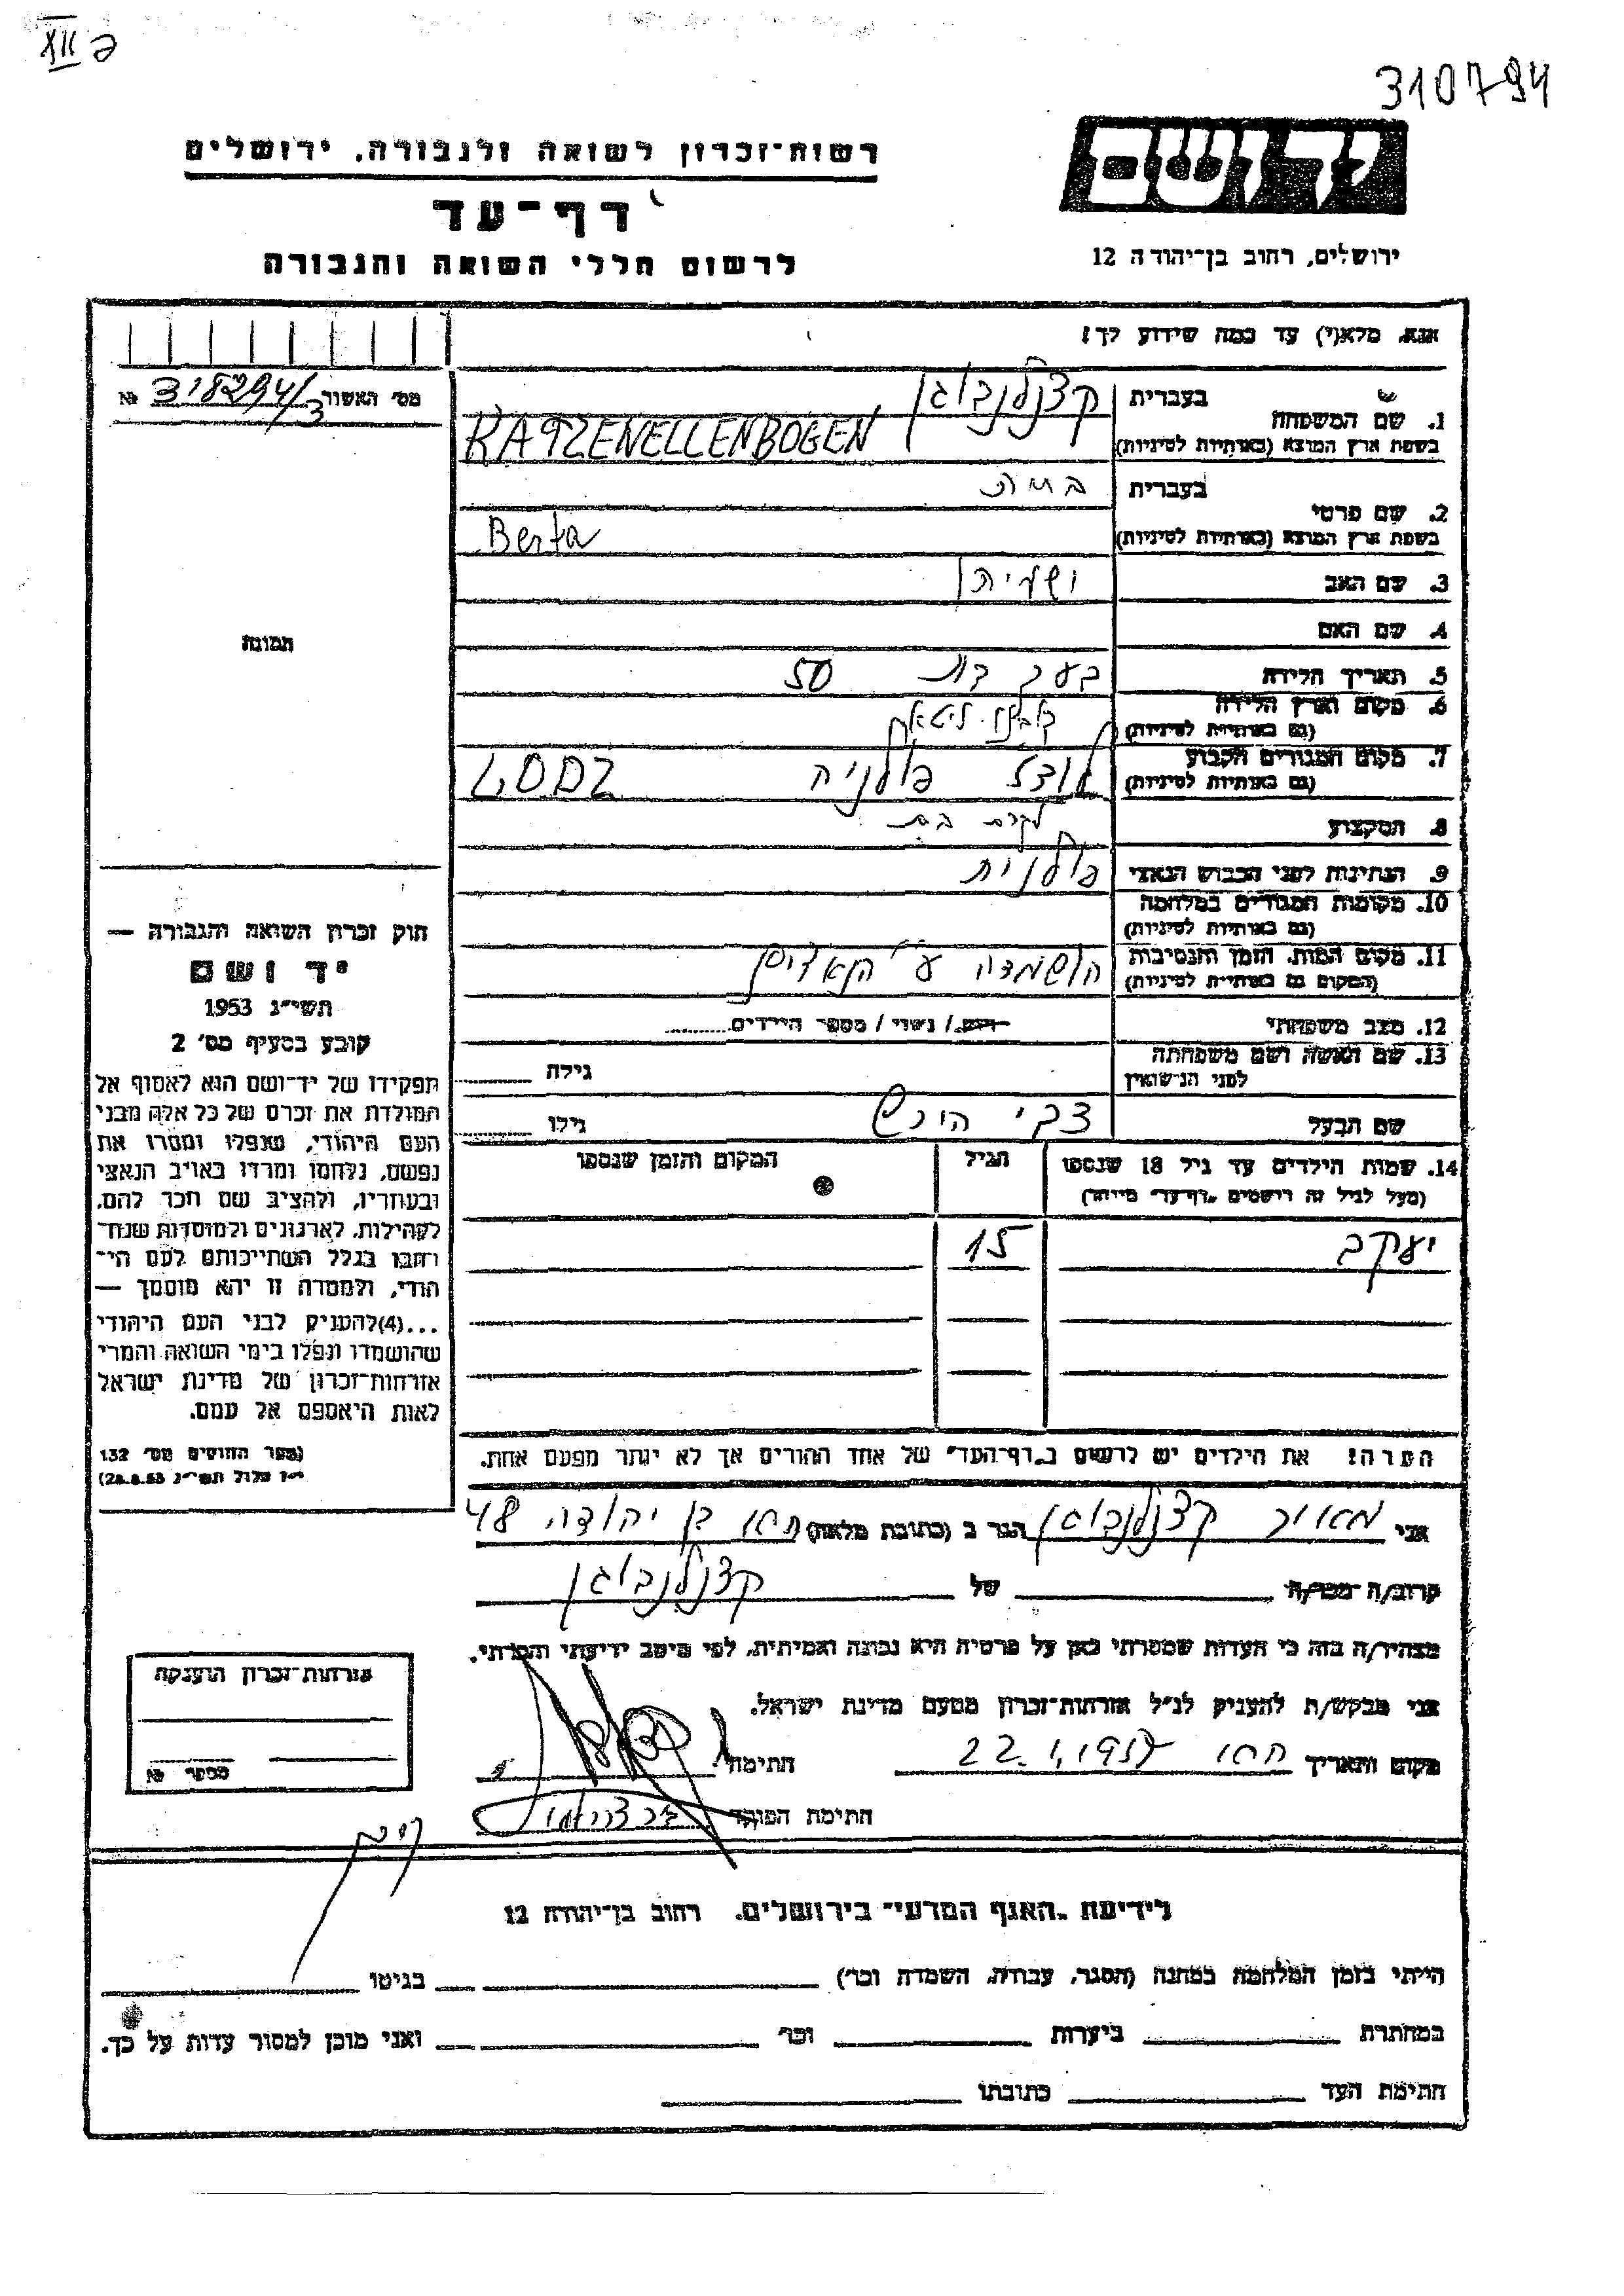 XII ב
310794
יד ושם
ירושלים, רחוב בן־יהודה 12
רשות־זכרון לשואה ולגבורה, ירושלים
דף־עד
לרשום חללי השואה והגבורה
אנא, מלא(י) עד כמה שידוע לך!
מס׳ האשור 318294/3 №
1. שם המשפחה
בעברית קצנלנבוגן
בשפת ארץ המוצא (באותיות לטיניות) KATZENELLENBOGEN
2. שם פרטי
בעברית ברטה
בשפת ארץ המוצא (באותיות לטיניות) Berta
3. שם האב
4. שם האם
5. תאריך הלידה בערך בת 50
6. מקום וארץ הלידה
(גם באותיות לטיניות)
7. מקום המגורים הקבוע לודז פולניה LODZ
(גם באותיות לטיניות)
8. המקצוע עקרת בית
9. הנתינות לפני הכבוש הנאצי פולנית
10. מקומות המגורים במלחמה
(גם באותיות לטיניות)
11. מקום המות, הזמן והנסיבות הושמדה ע״י הנאצים
(המקום גם באותיות לטיניות)
12. מצב משפחתי רווק/ נשוי / מספר הילדים
13. שם האשה ושם משפחתה
לפני הנישואין גילה
שם הבעל צבי הירש גילו
14. שמות הילדים עד גיל 18 שנספו הגיל המקום והזמן שנספו
(מעל לגיל זה רושמים „דף־עד״ מיוחד)
יעקב 15
הערה! את הילדים יש לרשום ב„דף־העד״ של אחד ההורים אך לא יותר מפעם אחת.
תמונה
חוק זכרון השואה והגבורה —
יד ושם
תשי״ג 1953
קובע בסעיף מס׳ 2
תפקידו של יד־ושם הוא לאסוף אל
המולדת את זכרם של כל אלה מבני
העם היהודי, שנפלו ומסרו את
נפשם, נלחמו ומרדו באויב הנאצי
ובעוזריו, ולהציב שם וזכר להם,
לקהילות, לארגונים ולמוסדות שנח־
רבו בגלל השתייכותם לעם הי־
הודי, ולמטרה זו יהא מוסמך —
...(4)להעניק לבני העם היהודי
שהושמדו ונפלו בימי השואה והמרי
אזרחות־זכרון של מדינת ישראל
לאות היאספם אל עמם.
(ספר החוקים מס׳ 132
י״ז אלול תשי״ג 28.8.53)
אני מאיר קצנלנבוגן הגר ב (כתובת מלאה) בן יהודה 48
קרוב/ה מכר/ה של קצנלנבוגן
מצהיר/ה בזה כי העדות שמסרתי כאן על פרטיה היא נכונה ואמיתית, לפי מיטב ידיעתי והכרתי.
אני מבקש/ת להעניק לנ״ל אזרחות־זכרון מטעם מדינת ישראל.
מקום ותאריך 22.1.1957 חתימה
חתימת הפוקד
אזרחות־זכרון הוענקה
מספר №
לידיעת „האגף המדעי״ בירושלים, רחוב בן־יהודה 12
הייתי בזמן המלחמה במחנה (הסגר, עבודה, השמדה וכו׳) בגיטו
במחתרת ביערות וכו׳ ואני מוכן למסור עדות על כך.
חתימת העד כתובתו